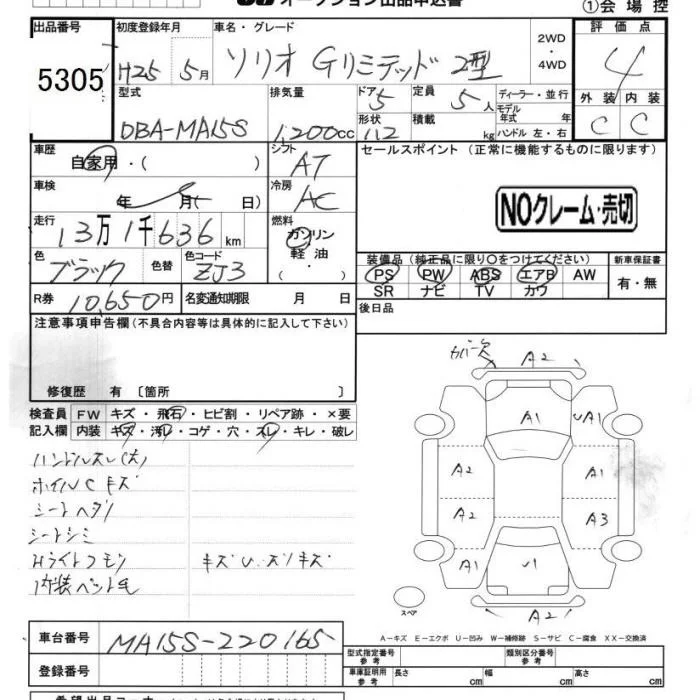 オークション出品申込書
①会場控
出品番号 初度登録年月 車名・グレード 2WD・4WD 評価点
5305 H25 5月 ソリオ Gリミテッド 2型 4
型式 排気量 ドア 5 定員 5人 ディーラー・並行 外装 内装
DBA-MA15S 1,200cc 形状 112 積載 kg モデル年式 年 ハンドル 左・右 C C
車歴 自家用・( ) シフト AT セールスポイント (正常に機能するものに限ります)
車検 年 月( 日) 冷房 AC
NOクレーム・売切
走行 13万1千636km 燃料 ガソリン 軽油 ・
色 ブラック 色替 色コード ZJ3
装備品 (純正品に限り○をつけてください) 新車保証書
PS PW ABS エアB AW 有・無
SR ナビ TV カワ
R券 10,650円 名変通知期限 月 日
後日品
注意事項申告欄(不具合内容等は具体的に記入して下さい)
修復歴 有 〔箇所 〕
検査員 FW キズ・飛石・ヒビ割・リペア跡・×要
記入欄 内装 キズ・汚レ・コゲ・穴・スレ・キレ・破レ
ハンドルスレ(大)
ホイルC キズ
シートヘタリ
シートシミ
Hライトクモリ キズU.スリキズ
内装ペット毛
カバー欠 A2
A1 UA1
A2 A1
A2 A3
A1 U1
スペア A2
A-キズ E-エクボ U-凹み W-補修跡 S-サビ C-腐食 XX-交換済
車台番号 MA15S-220165
登録番号
型式指定番号 参考 類別区分番号 参考
車庫証明用 参考 長さ cm 幅 cm 高さ cm